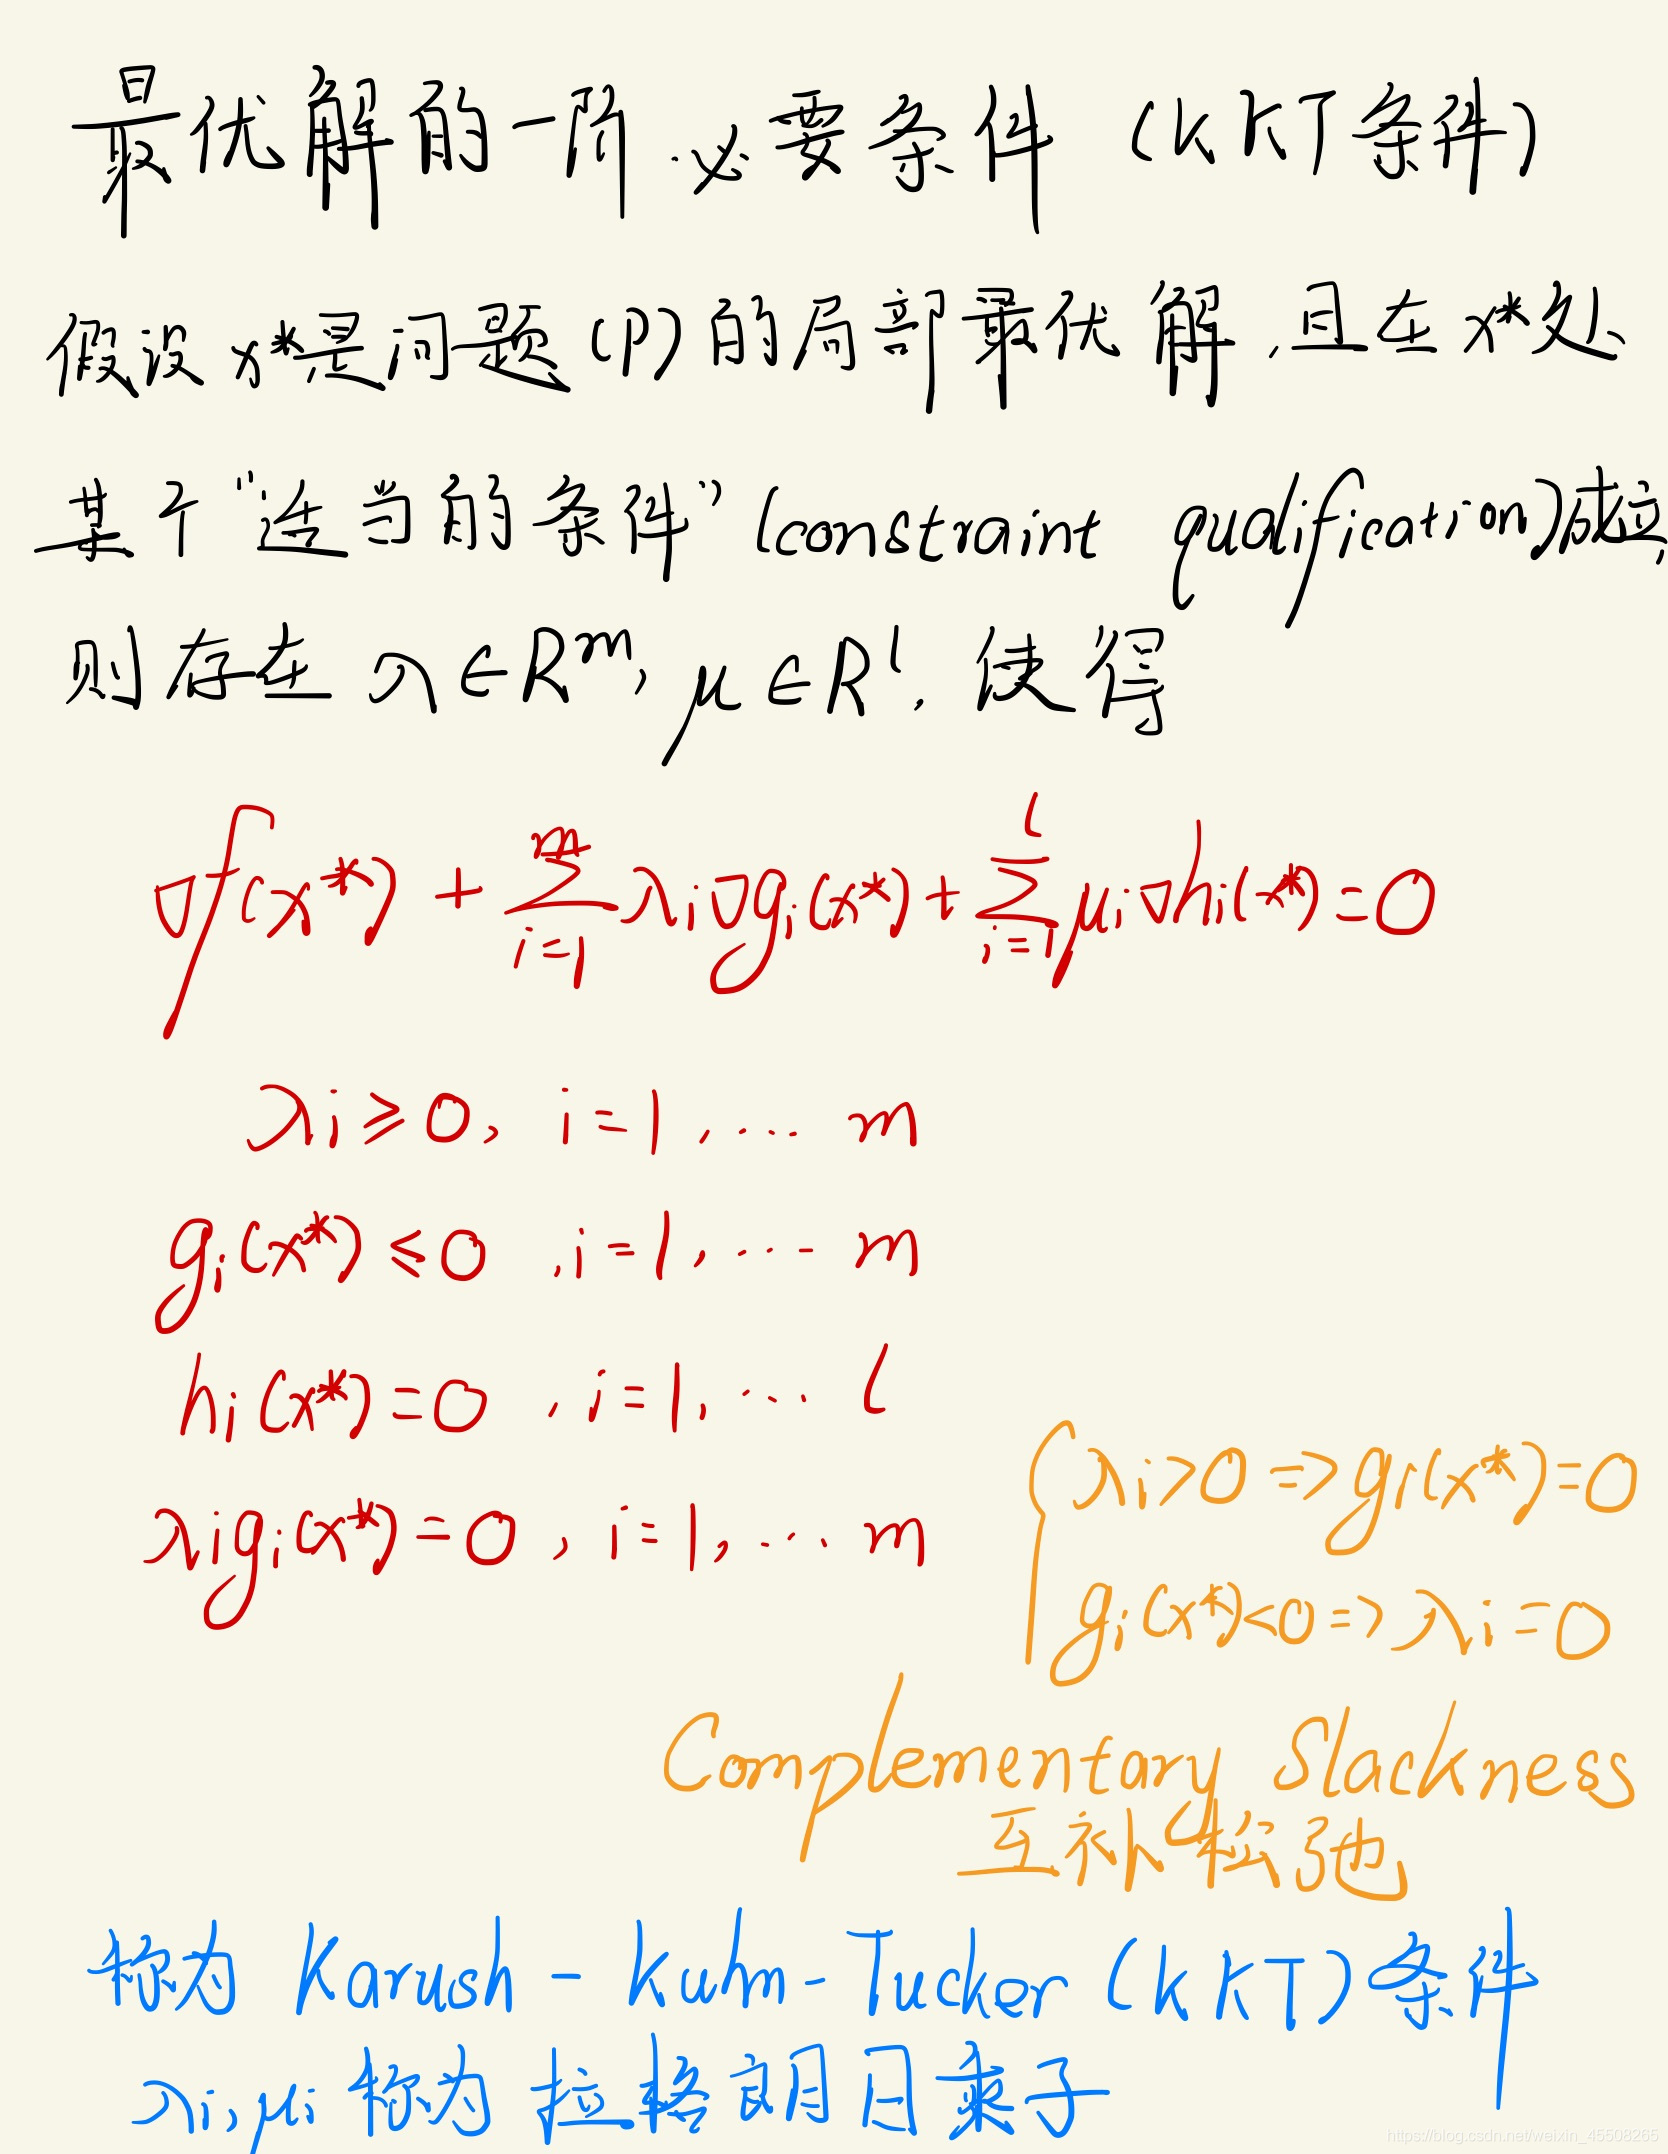 最优解的一阶必要条件 (KKT条件)
假设 x*是问题(P)的局部最优解,且在x*处
某个"适当的条件"(constraint qualification)成立,
则存在 λ∈R^m, μ∈R^l, 使得
∇f(x*) + ∑_{i=1}^{m} λi∇gi(x*) + ∑_{i=1}^{l} μi∇hi(x*) = 0
λi ≥ 0, i=1, ... m
gi(x*) ≤ 0 , i=1, ... m
hi(x*) = 0 , i=1, ... l
λigi(x*) = 0 , i=1, ... m
{ λi>0 => gi(x*)=0
gi(x*)<0 => λi=0
Complementary Slackness
互补松弛
称为 Karush - Kuhn - Tucker (KKT)条件
λi, μi 称为 拉格朗日乘子
https://blog.csdn.net/weixin_45508265